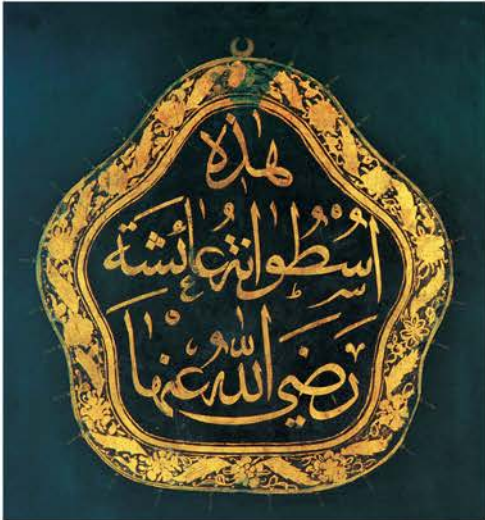 هٰذِهِ
أُسْطُوَانَةُ عَائِشَةَ
رَضِيَ اللّٰهُ عَنْهَا